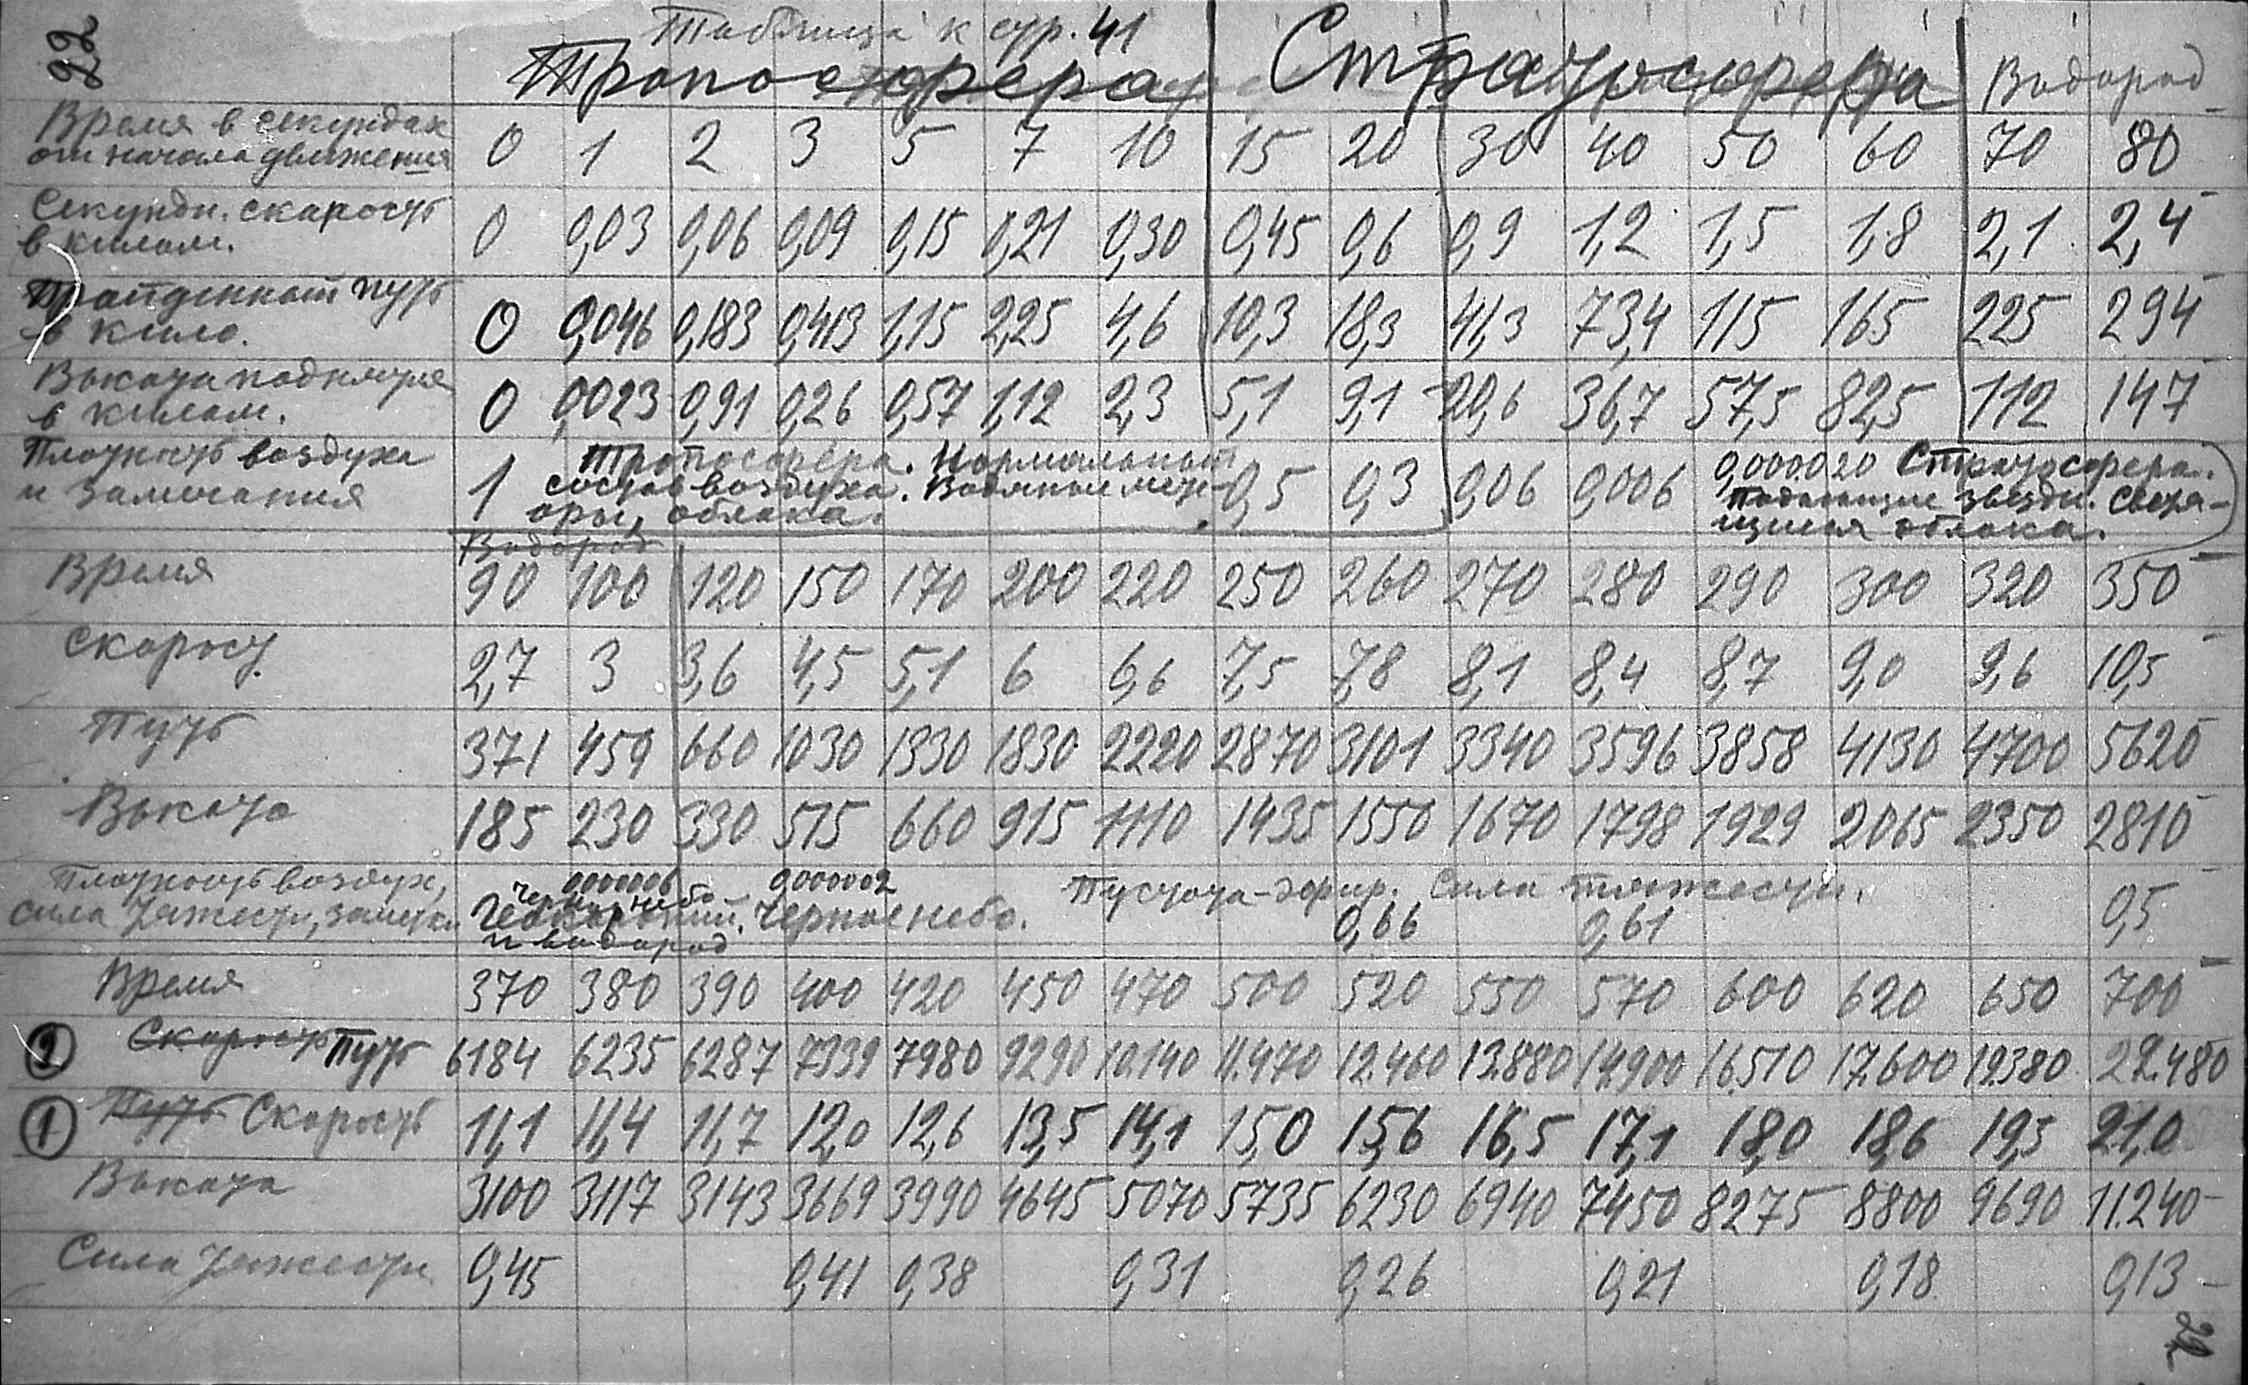 22
Таблица к стр. 41
Тропосфера Стратосфера Водород
Время в секундах
от начала движения 0 1 2 3 5 7 10 15 20 30 40 50 60 70 80
Секундн. скорость
в килом. 0 0,03 0,06 0,09 0,15 0,21 0,30 0,45 0,6 0,9 1,2 1,5 1,8 2,1 2,4
Пройденный путь
в кило. 0 0,046 0,183 0,413 1,15 2,25 4,6 10,3 18,3 41,3 73,4 115 165 225 294
Высота поднятия
в килом. 0 0,023 0,91 0,26 0,57 1,12 2,3 5,1 9,1 20,6 36,7 57,5 82,5 112 147
Плотность воздуха
и замечания 1 0,5 0,3 0,06 0,006 0,000020 Стратосфера.
Тропосфера. Нормальный
состав воздуха. Водяные мете-
оры, облака.
Падающие звезды. Светя-
щиеся облака.
Водород
Время 90 100 120 150 170 200 220 250 260 270 280 290 300 320 350
Скорость 2,7 3 3,6 4,5 5,1 6 6,6 7,5 7,8 8,1 8,4 8,7 9,0 9,6 10,5
Путь 371 459 660 1030 1330 1830 2220 2870 3101 3340 3596 3858 4130 4700 5620
Высота 185 230 330 515 660 915 1110 1435 1550 1670 1798 1929 2065 2350 2810
Плотность воздух,
сила тяжести, заметки
0000006 0000002
Черное небо
Геокороний. Черное небо.
и водород
Пустота-эфир. Сила тяжести.
0,66 0,61 0,5
Время 370 380 390 400 420 450 470 500 520 550 570 600 620 650 700
2 Скорость Путь 6184 6235 6287 7339 7980 9290 10.140 11.470 12.460 13.880 14.900 16.510 17.600 19.380 22.480
1 Путь Скорость 11,1 11,4 11,7 12,0 12,6 13,5 14,1 15,0 15,6 16,5 17,1 18,0 18,6 19,5 21,0
Высота 3100 3117 3143 3669 3990 4645 5070 5735 6230 6940 7450 8275 8800 9690 11.240
Сила тяжести 0,45 0,41 0,38 0,31 0,26 0,21 0,18 0,13